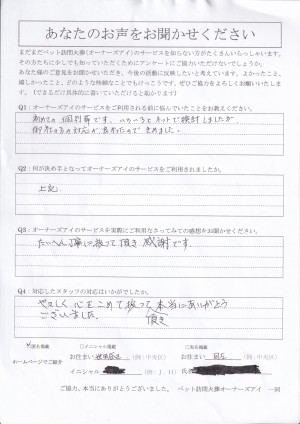 あなたのお声をお聞かせください
まだまだペット訪問火葬(オーナーズアイ)のサービスを知らない方がたくさんいらっしゃいます。
その方たちに少しでも知っていただくためにアンケートにご協力いただけないでしょうか。
あなた様のご意見をお聞かせいただき、今後の活動に反映したいと考えています。よかったこと、
嬉しかったこと、どのような些細なことでもけっこうです。ぜひご協力をよろしくお願いいたします。
(できるだけ具体的に書いていただけると助かります)
Q1:オーナーズアイのサービスをご利用される前に悩んでいたことをお教えください。
初めての個別葬です、いろいろとネットで検討しましたが
御社の対応が良かったので きめました。
Q2:何が決め手となってオーナーズアイのサービスをご利用されましたか。
上記
Q3:オーナーズアイのサービスを実際にご利用なさってみての感想をお聞かせください。
たいへん丁寧に扱って頂き 感謝です。
Q4:対応したスタッフの対応はいかがでしたか。
やさしく 心をこめて扱って頂き 本当にありがとう
ございました。
□匿名掲載 □イニシャル掲載 □実名掲載
ホームページでご紹介
お住まい (例:中央区) お住まい (例:中央区)
イニシャル (例:J.H) 氏名
ご協力、本当にありがとうございました。 ペット訪問火葬オーナーズアイ 一同